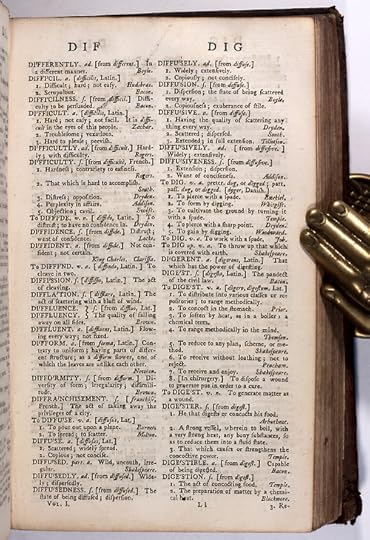 DIF
DIFFERENTLY. ad. [from different.] In
a different manner. Boyle.
DIFFICIL. a. [difficilis, Latin.]
1. Difficult; hard; not easy. Hudibras.
2. Scrupulous. Bacon.
DIFFICILNESS. s. [from difficil.] Difficulty
to be persuaded. Bacon.
DIFFICULT. a. [difficilis, Latin.]
1. Hard; not easy; not facil. It is difficult
in the eyes of this people. Zachar.
2. Troublesome; vexatious.
3. Hard to please; peevish.
DIFFICULTLY. ad. [from difficult.] Hardly;
with difficulty. Rogers.
DIFFICULTY. s. [from difficulté, French.]
1. Hardness; contrariety to easiness.
Rogers.
2. That which is hard to accomplish.
South.
3. Distress; opposition. Dryden.
4. Perplexity in affairs. Addison.
5. Objection; cavil. Swift.
To DIFFIDE. v. n. [diffido, Latin.] To
distrust; to have no confidence in. Dryden.
DIFFIDENCE. s. [from diffide.] Distrust;
want of confidence. Locke.
DIFFIDENT. a. [from diffide.] Not confident;
not certain.
King Charles. Clarissa.
To DIFFIND. v. a. [diffindo, Latin.] To
cleave in two.
DIFFISSION. s. [diffissio, Latin.] The act
of cleaving.
DIFFLATION. s. [difflare, Latin.] The
act of scattering with a blast of wind.
DIFFLUENCE. } s. [from diffluo, Lat.]
DIFFLUENCY. } The quality of falling
away on all sides. Brown.
DIFFLUENT. a. [diffluens, Latin.] Flowing
every way; not fixed.
DIFFORM. a. [from forma, Latin.] Contrary
to uniform; having parts of different
structure; as a difform flower, one of
which the leaves are unlike each other.
Newton.
DIFFORMITY. s. [from difform.] Diversity
of form; irregularity; dissimilitude.
Brown.
DIFFRANCHISEMENT. s. [franchise,
French.] The act of taking away the
privileges of a city.
To DIFFUSE. v. a. [diffusus, Lat.]
1. To pour out upon a plane. Burnet.
2. To spread; to scatter. Milton.
DIFFUSE. a. [diffusus, Lat.]
1. Scattered; widely spread.
2. Copious; not concise.
DIFFUSED. part. a. Wild, uncouth, irregular.
Shakespeare.
DIFFUSEDLY. ad. [from diffused.] Widely;
dispersedly.
DIFFUSEDNESS. s. [from diffused.] The
state of being diffused; dispersion.
VOL. I.
DIG
DIFFUSELY. ad. [from diffuse.]
1. Widely; extensively.
2. Copiously; not concisely.
DIFFUSION. s. [from diffuse.]
1. Dispersion; the state of being scattered
every way. Boyle.
2. Copiousness; exuberance of stile.
DIFFUSIVE. a. [from diffuse.]
1. Having the quality of scattering any
thing every way. Dryden.
2. Scattered; dispersed. South.
3. Extended; in full extension. Tillotson.
DIFFUSIVELY. ad. [from diffusive.]
Widely; extensively.
DIFFUSIVENESS. s. [from diffusive.]
1. Extension; dispersion.
2. Want of conciseness. Addison.
To DIG. v. a. preter. dug, or digged; part.
pass. dug, or digged. [dyger, Danish.]
1. To pierce with a spade. Ezekiel.
2. To form by digging. Whitgift.
3. To cultivate the ground by turning it
with a spade. Temple.
4. To pierce with a sharp point. Dryden.
5. To gain by digging. Woodward.
To DIG. v. n. To work with a spade. Job.
To DIG up. v. a. To throw up that which
is covered with earth. Shakespeare.
DIGERENT. a. [digerens, Lat.] That
which has the power of digesting.
DIGEST. s. [digesta, Latin.] The pandect
of the civil law. Bacon.
To DIGEST. v. a. [digero, digestum, Lat.]
1. To distribute into various classes or repositories;
to range methodically.
2. To concoct in the stomach. Prior.
3. To soften by heat, as in a boiler: a
chemical term.
4. To range methodically in the mind.
Thomson.
5. To reduce to any plan, scheme, or method.
Shakespeare.
6. To receive without loathing; not to
reject. Peacham.
7. To receive and enjoy. Shakespeare.
8. [In chirurgery.] To dispose a wound
to generate pus in order to a cure.
To DIGEST. v. n. To generate matter as
a wound.
DIGESTER. s. [from digest.]
1. He that digests or concocts his food.
Arbuthnot.
2. A strong vessel, wherein to boil, with
a very strong heat, any bony substances, so
as to reduce them into a fluid state.
3. That which causes or strengthens the
concoctive power. Temple.
DIGESTIBLE. a. [from digest.] Capable
of being digested. Bacon.
DIGESTION. s. [from digest.]
1. The act of concocting food. Temple.
2. The preparation of matter by a chemical
heat. Blackmore.
L l
3. Re-